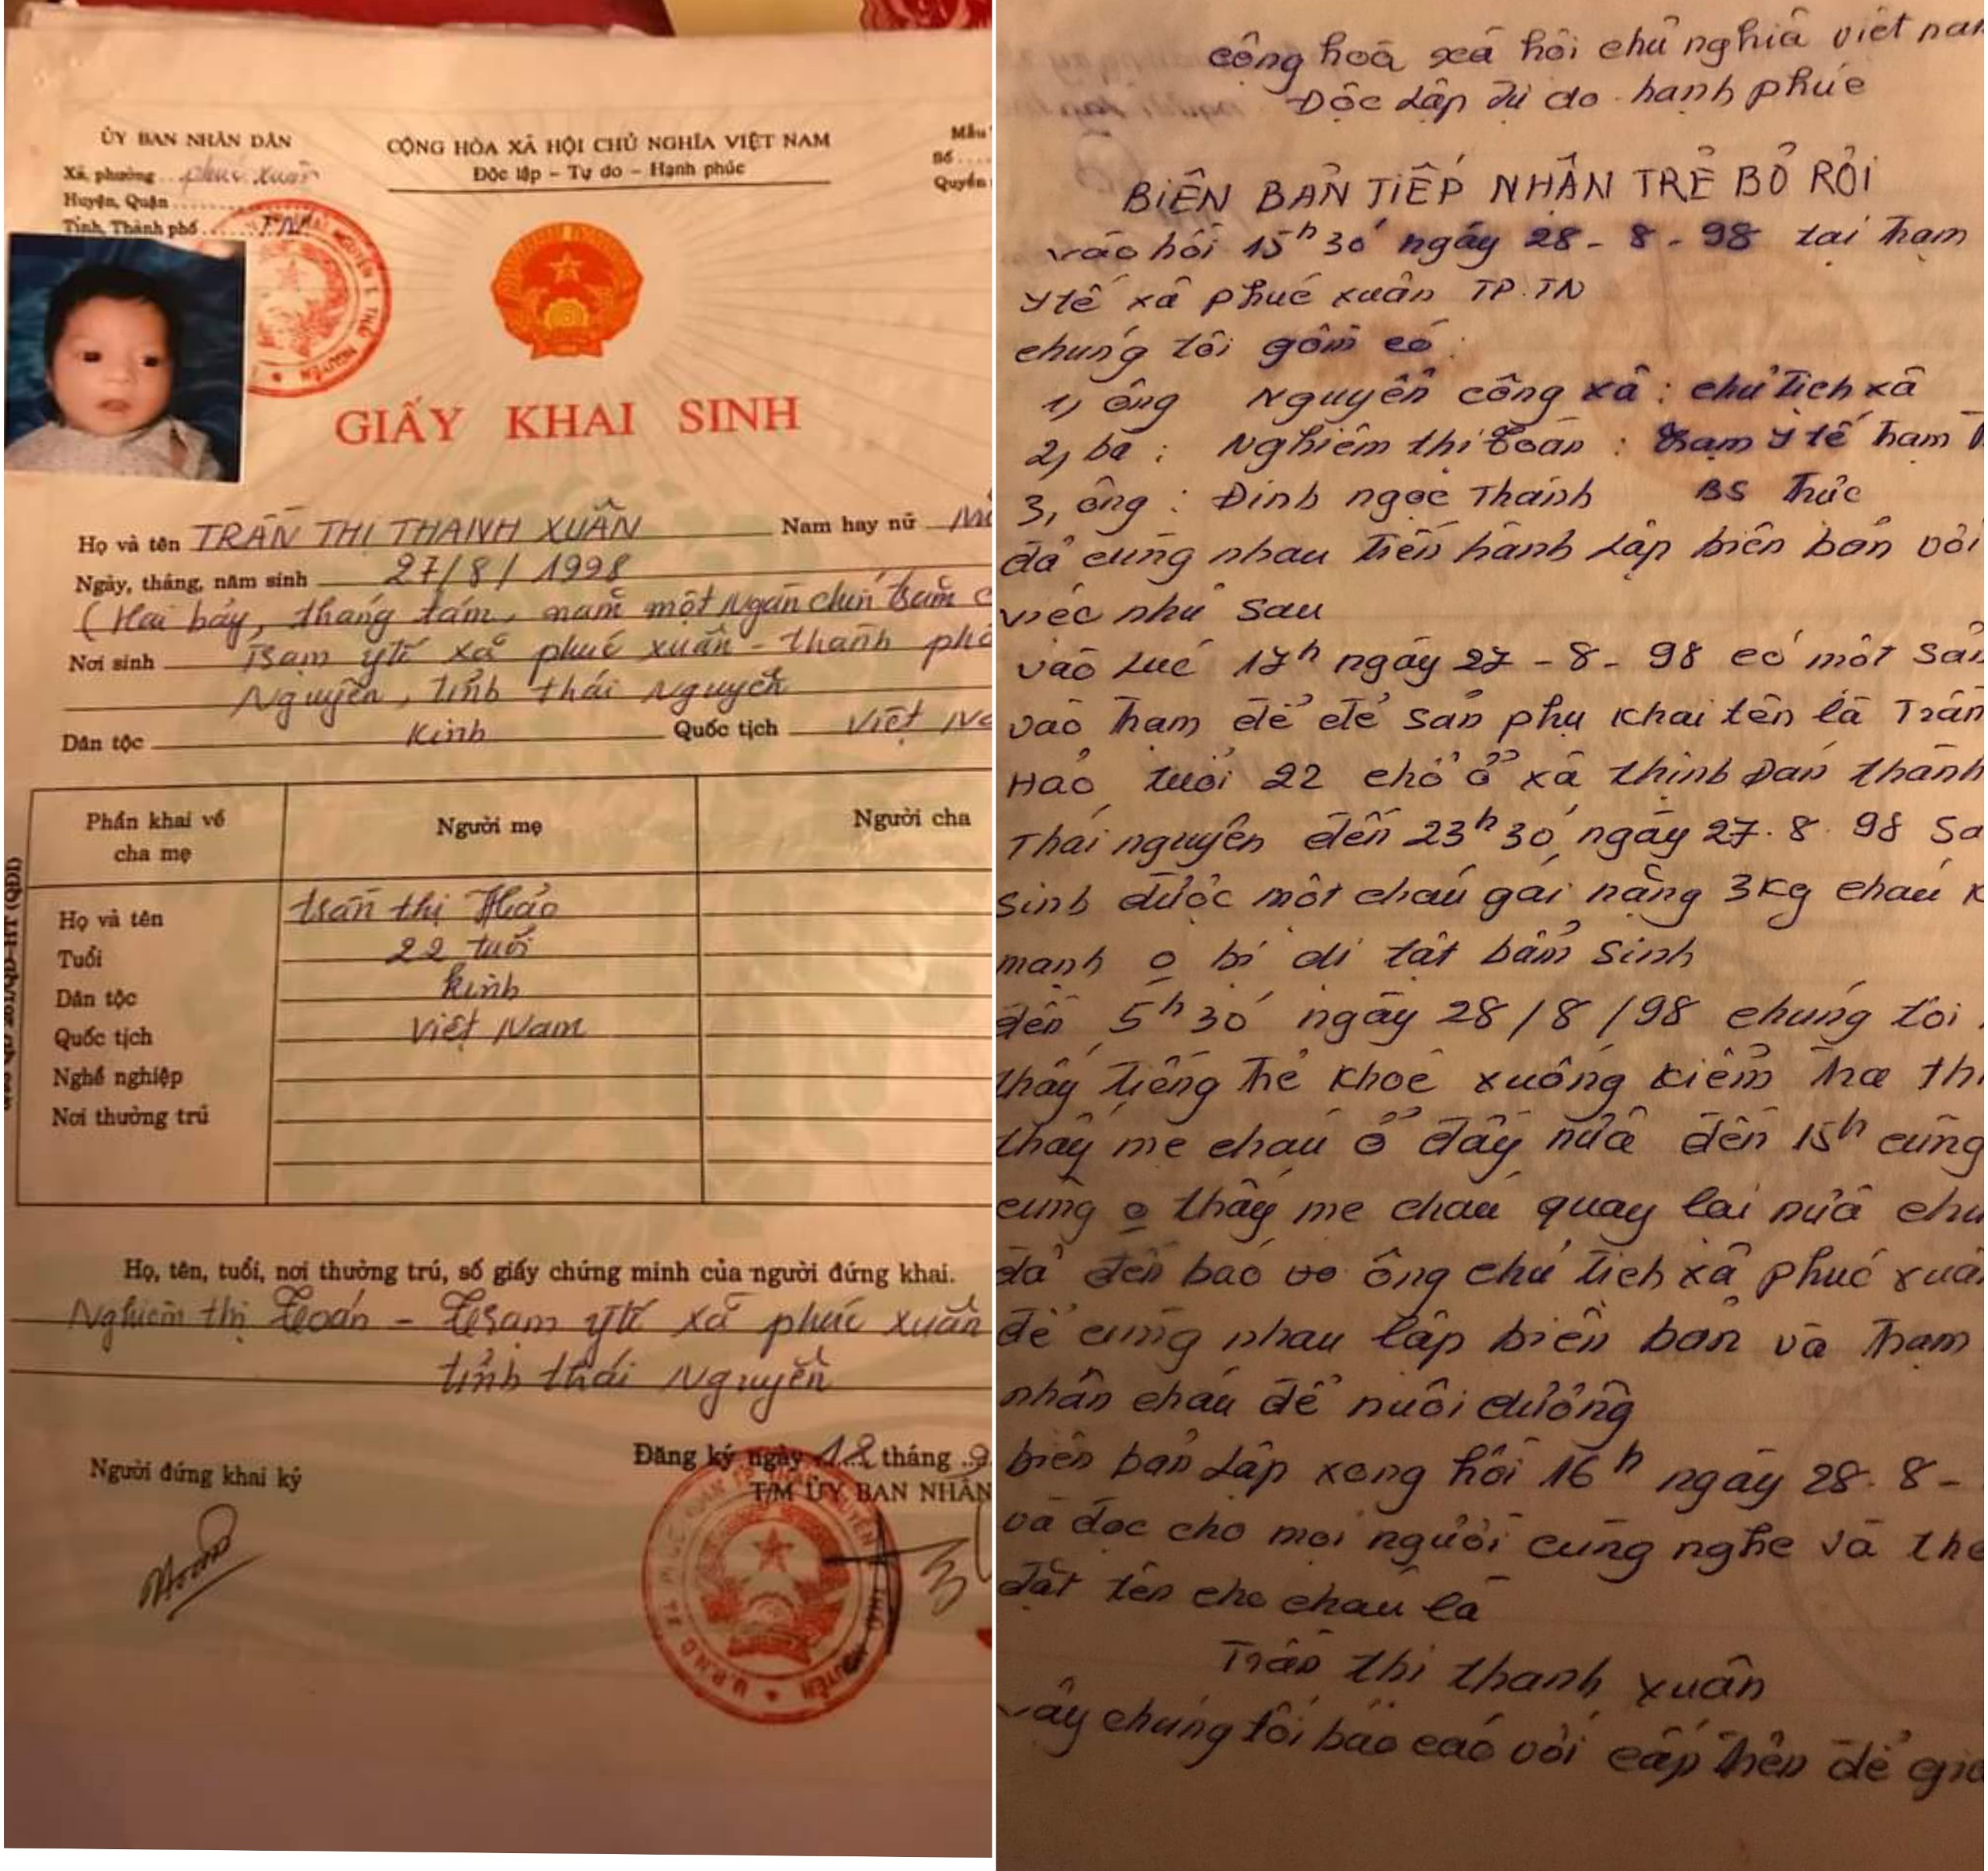 ỦY BAN NHÂN DÂN
Xã, phường phúc xuân
Huyện, Quận
Tỉnh, Thành phố TN
CỘNG HÒA XÃ HỘI CHỦ NGHĨA VIỆT NAM
Độc lập - Tự do - Hạnh phúc
Mẫu
Số
Quyển
GIẤY KHAI SINH
Họ và tên TRẦN THỊ THANH XUÂN Nam hay nữ
Ngày, tháng, năm sinh 27/8/1998
(Hai bảy, tháng tám, năm một ngàn chín trăm
Nơi sinh Trạm ytế xã phúc xuân - thành phố
Nguyên, tỉnh thái Nguyên
Dân tộc Kinh Quốc tịch Việt
Phần khai về cha mẹ
Người mẹ
Người cha
Họ và tên trần thị Hảo
Tuổi 22 tuổi
Dân tộc kinh
Quốc tịch Việt Nam
Nghề nghiệp
Nơi thường trú
Họ, tên, tuổi, nơi thường trú, số giấy chứng minh của người đứng khai.
Nghiêm thị toán - trạm ytế xã phúc xuân
tỉnh thái Nguyên
Người đứng khai ký
Đăng ký ngày 18 tháng 9
T/M ỦY BAN NHÂN
cộng hoà xã hội chủ nghiã việt
Độc Lập Tự do hạnh phúc
BIÊN BẢN TIẾP NHẬN TRẺ BỎ RƠI
vào hồi 15h30' ngày 28-8-98 tại Trạm
y tế xã phúc xuân TP.TN
chúng tôi gồm có:
1, ông Nguyễn công xã: chủ tịch xã
2, bà: Nghiêm thị toán: trạm y tế Trạm
3, ông: Đinh ngọc Thánh BS Trực
đã cùng nhau tiến hành Lập biên bản với
việc như sau
vào Lúc 17h ngày 27-8-98 có một
vào Trạm để đẻ sản phụ khai tên là Trần
Hảo, tuổi 22 chổ ở xã thịnh Đán thành
Thái nguyên đến 23h30, ngày 27.8.98
sinh được một cháu gái nặng 3kg cháu
mạnh o bị dị tật bẩm sinh
đến 5h30' ngày 28/8/98 chúng tôi
thấy tiếng trẻ khoc xuống kiểm tra
thấy mẹ cháu ở đây nữa đến 15h cũng
cũng o thấy mẹ cháu quay lại nữa
đã đến báo ông chủ tịch xã phúc
để cùng nhau lập biên bản và Trạm
nhận cháu để nuôi dưỡng
biên bản Lập xong hồi 16h ngày 28.8-
và đọc cho mọi người cùng nghe và
đặt tên cho cháu là
Trần thị thanh xuân
vậy chúng tôi báo cáo với cấp trên để